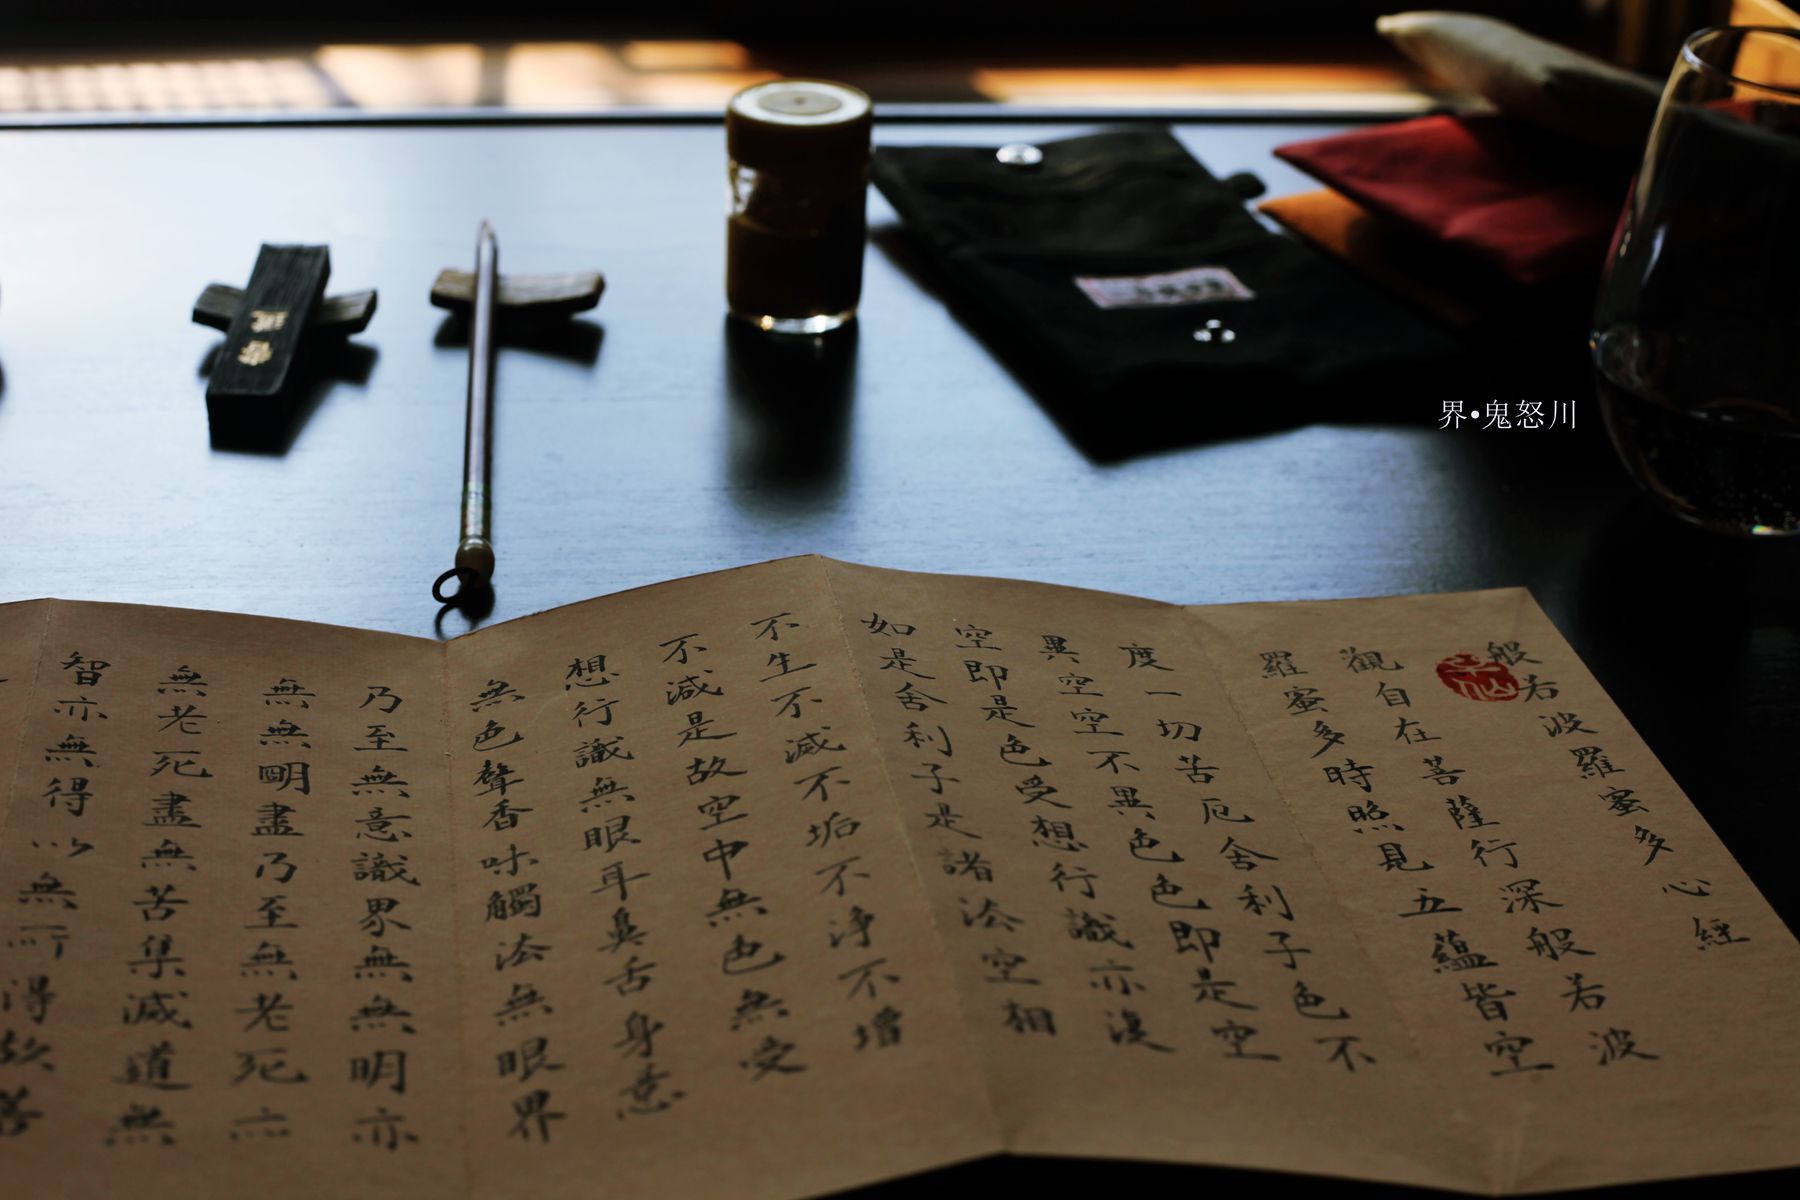 界•鬼怒川
般若波羅蜜多心經
觀自在菩薩行深般若波
羅蜜多時照見五蘊皆空
度一切苦厄舍利子色不
異空空不異色色即是空
空即是色受想行識亦復
如是舍利子是諸法空相
不生不滅不垢不淨不增
不減是故空中無色無受
想行識無眼耳鼻舌身意
無色聲香味觸法無眼界
乃至無意識界無無明亦
無無明盡乃至無老死亦
無老死盡無苦集滅道無
智亦無得以無所得故菩